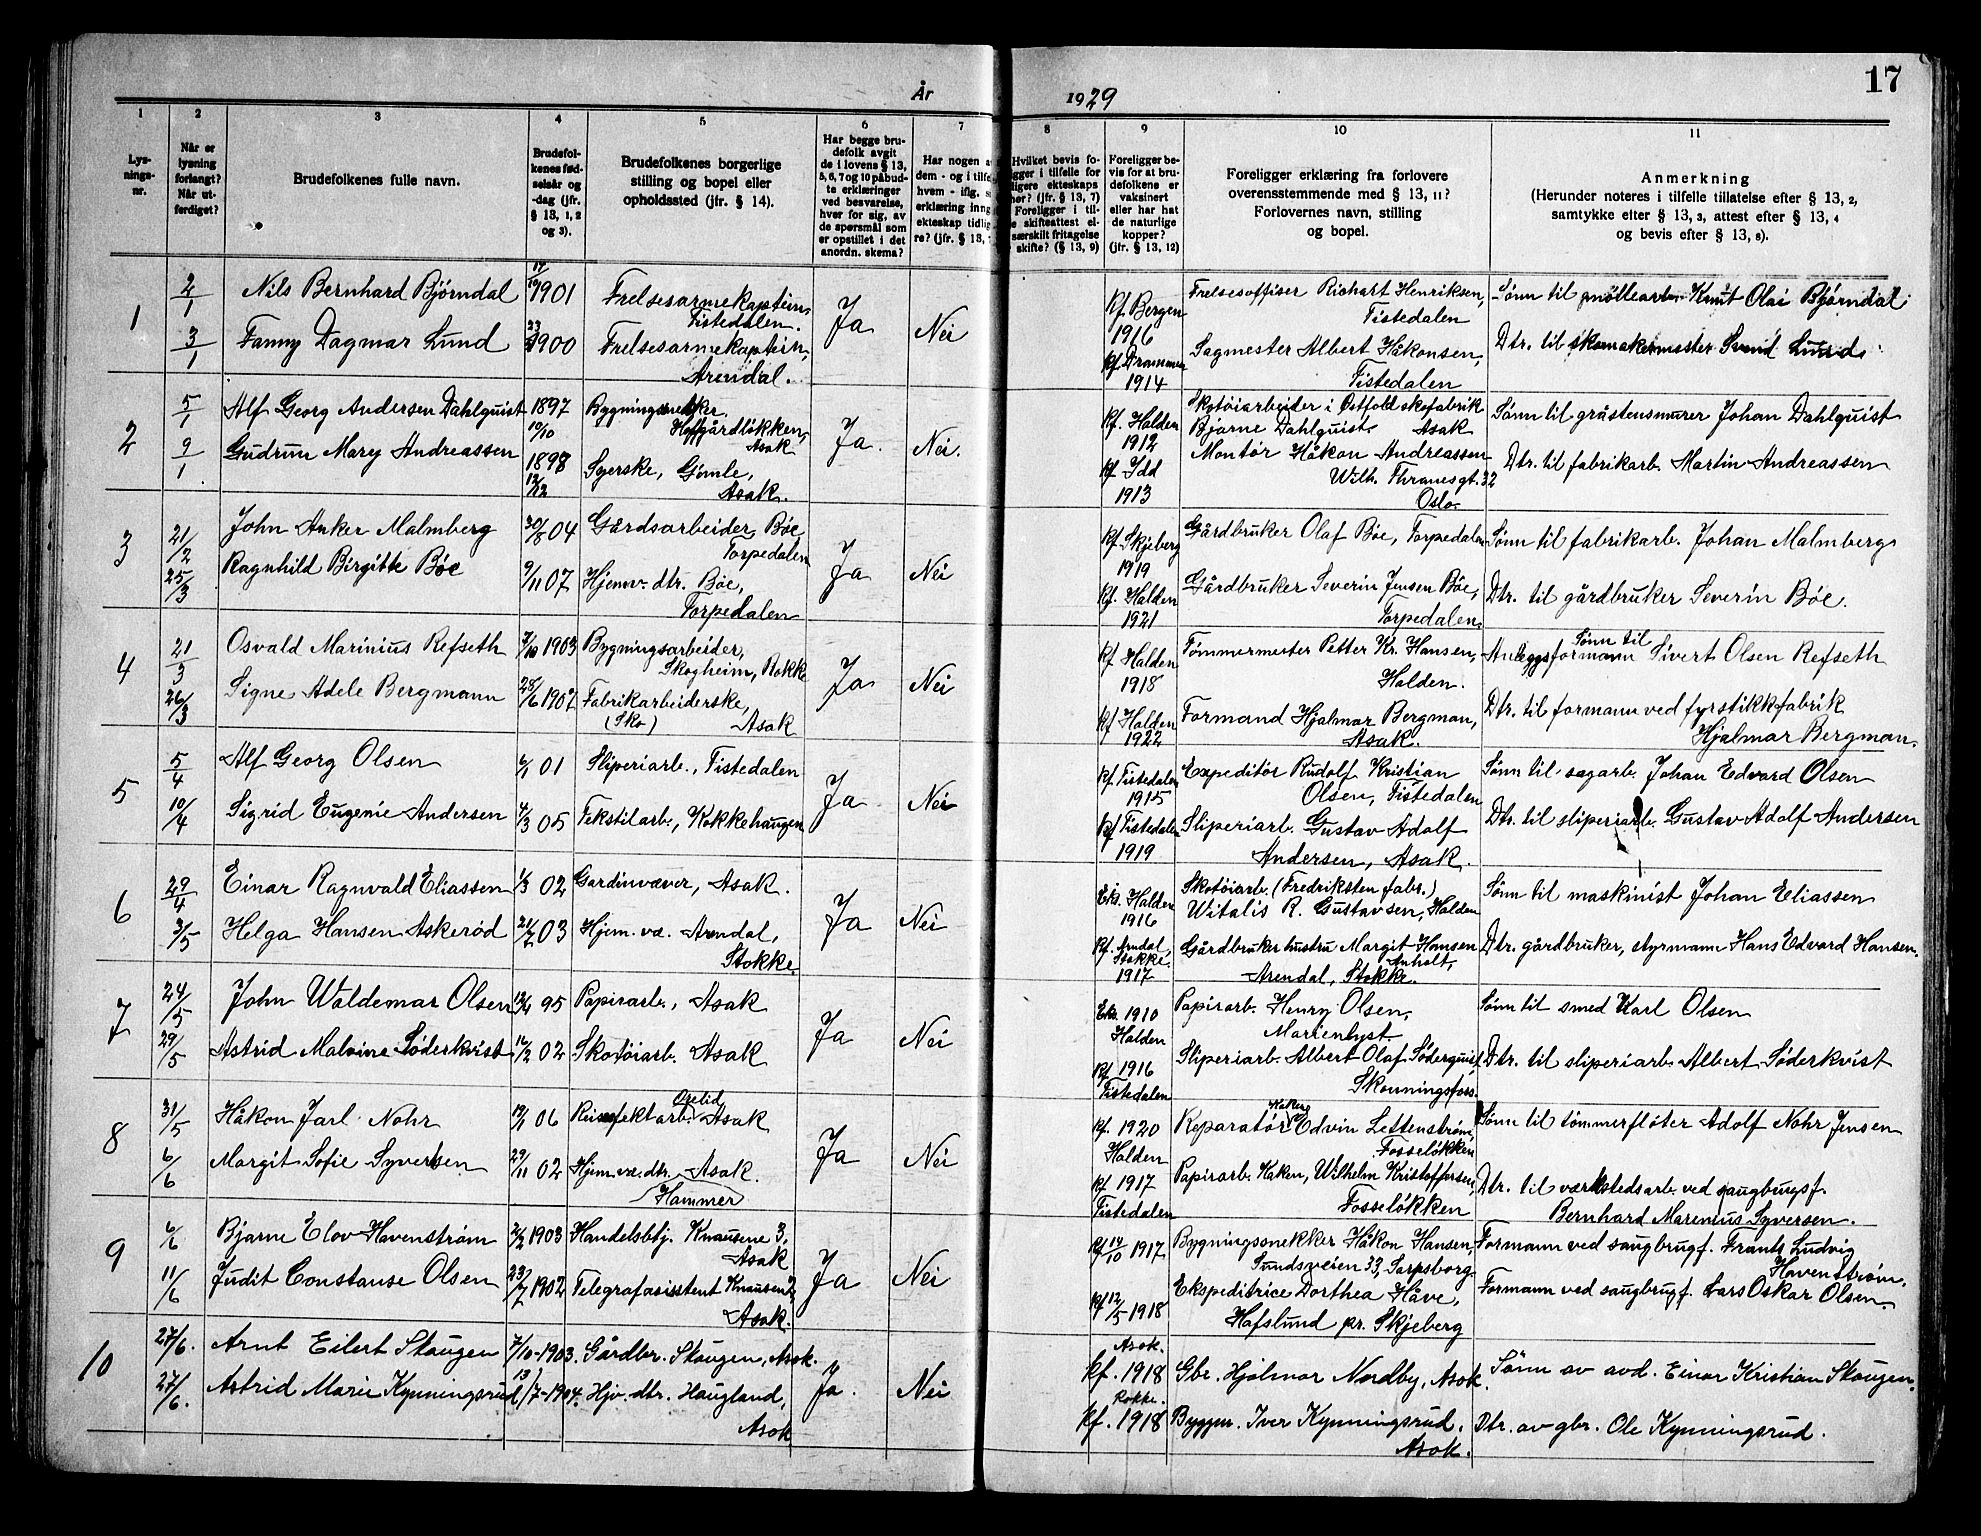 17
År 1929
1 2 3 4 5 6 7 8 9 10 11
Lys-
nings-
nr.
Når er
lysning
forlangt?
Når ut-
ferdiget?
Brudefolkenes fulle navn.
Brudefol-
kenes fød-
selsår og
-dag (jfr.
§ 13, 1, 2
og 3).
Brudefolkenes borgerlige
stilling og bopel eller
opholdssted (jfr. § 14).
Har begge bru-
defolk avgit
de i lovens § 13,
5, 6, 7 og 10 påbud-
te erklæringer
ved besvarelse,
hver for sig, av
de spørsmål som
er opstillet i det
anordn. skema?
Har nogen a
dem - og i tilfe
hvem - iflg. s
erklæring inng
ekteskap tidlig
re? (jfr. § 13, 7
Hvilket bevis fo-
igger i tilfelle for
ligere ekteskaps
her? (jfr. § 13, 7)
Foreligger i til-
e skifteattest el-
særskilt fritagelse
skifte? (§ 13, 9)
Foreligger be-
vis for at bru-
defolkene er
vaksinert
eller har hat
de naturlige
kopper?
(jfr. § 13, 12)
Foreligger erklæring fra forlovere
overensstemmende med § 13, 11?
Forlovernes navn, stilling
og bopel.
Anmerkning
(Herunder noteres i tilfelle tillatelse efter § 13, 2,
samtykke efter § 13, 3, attest efter § 13, 4
og bevis efter § 13, 8).
1
2/1
3/1
Nils Bernhard Bjørndal
Fanny Dagmar Lund
1901
1900
Frelsesarmekaptein,
Tistedalen.
Frelsesarmekaptein,
Arendal.
Ja
Nei
Kf. Bergen
1916
Kf. Drammen
1914
Frelsesoffiser Richart Henriksen,
Tistedalen
Sagmester Albert Håkonsen,
Tistedalen
Sønn til møllearb. Knut Olai Bjørndal
Dtr. til skomakermester Svend Lund
2
5/1
9/1
Alf Georg Andersen Dahlquist
Gudrun Mary Andreassen
1897
19/10
1898
12/12
Bygningssnekker.
Hoffgårdløkken,
Asak
Syerske, Gimle,
Asak.
Ja.
Nei.
Kf. Halden
1912
Kf Idd
1913
Skotøiarbeider i Østfold skofabrik
Bjarne Dahlquist. Asak
Montør Håkon Andreassen
Wilh. Thranesgt. 32
Oslo.
Sønn til gråstensmurer Johan Dahlquist
Dtr. til fabrikarb. Martin Andreassen
3
21/2
25/3
John Anker Malmberg
Ragnhild Birgitte Bøe
30/8 04
9/11 07
Gårdsarbeider, Bøe,
Torpedalen
Hjemv. dtr. Bøe,
Torpedalen
Ja
Nei
Kf. Skjeberg
1919
Kf. Halden
1921
Gårdbruker Olaf Bøe, Torpedalen
Gårdbruker Severin Jensen Bøe,
Torpedalen.
Sønn til fabrikarb. Johan Malmberg
Dtr. til gårdbruker Severin Bøe.
4
21/3
26/3
Osvald Marinius Refseth
Signe Adele Bergmann
7/10 1903
28/6 1907
Bygningsarbeider,
Skogheim, Rokke
Fabrikarbeiderske,
(Sko) Asak
Ja
Nei
Kf Halden
1918
Kf Halden
1922
Tømmermester Petter Kr. Hansen,
Halden.
Formand Hjalmar Bergman,
Asak.
Sønn til
Anleggsformann Sivert Olsen Refseth
Dtr. til formann ved fyrstikkfabrik
Hjalmar Bergman.
5
5/4
10/4
Alf Georg Olsen
Sigrid Eugenie Andersen
6/1 01
4/3 05
Sliperiarb., Tistedalen
Tekstilarb., Kokkehaugen
Ja
Nei
Kf. Tistedalen
1915
Kf Tistedalen
1919
Expeditør Rudolf Kristian
Olsen, Tistedalen
Sliperiarb. Gustav Adolf
Andersen, Asak.
Sønn til sagarb. Johan Edvard Olsen
Dtr. til sliperiarb. Gustav Adolf Andersen
6
29/4
3/5
Einar Ragnvald Eliassen
Helga Hansen Askerød
1/3 02
21/7 03
Gardinvæver, Asak.
Hjem. væ. Arendal,
Stokke
Ja
Nei
Eks. Halden
1916
Kf. Arndal,
Stokke.
1917
Skotøiarb. (Fredriksten fabr.)
Witalis R. Gustavsen, Halden
Gårdbrukerhustru Margit Hansen
Anholt,
Arendal, Stokke.
Sønn til maskinist Johan Eliassen
Dtr. gårdbruker, styrmann Hans Edvard Hansen.
7
24/5
29/5
John Waldemar Olsen
Astrid Malvine Söderkvist
12/4 95
16/2 02
Papirarb., Asak
Skotøiarb. Asak
Ja
Nei
Eks. 1910
Halden
Kf. 1916
Tistedalen
Papirarb. Henry Olsen,
Marienlyst.
Sliperiarb. Albert Olaf Söderquist,
Skonningsfoss.
Sønn til smed Karl Olsen
Dtr. til sliperiarb. Albert Söderkvist
8
31/5
6/6
Håkon Jarl Nohr
Margit Sofie Syvertsen
19/1 06
29/11 02
Reiseeffektarb. Asak
Hjem. væ. dtr. Asak.
Hammer
Ja
Nei
Kf. 1920
Halden
Kf. 1917
Tistedalen
Reparatør Edvin Lettenstrøm,
Fosseløkken
Papirarb. Haken, Wilhelm Kristoffersen,
Fosseløkken
Sønn til tømmerfløter Adolf Nohr Jensen
Dtr. til værkstedsarb. ved saugbrugsf.
Bernhard Marenius Syversen.
9
6/6
11/6
Bjarne Elov Havenstrøm
Judit Constanse Olsen
2/2 1903
23/7 1902
Handelsbtj. Knausene 3,
Asak
Telegrafasisstent Knausen 2,
Asak.
Ja
Nei
Kf 14/10 1917
Kf 12/5 1918
Bygningssnekker Håkon Hansen,
Sundsveien 33, Sarpsborg
Ekspeditrice Dorthea Håve,
Hafslund pr. Skjeberg
Formann ved saugbrugf. Frantz Ludvig
Havenstrøm.
Formann ved saugbrugf. Lars Oskar Olsen.
10
27/6.
27/6.
Arnt Eilert Skaugen
Astrid Marie Kynningsrud
7/10-1903.
13/7-1904.
Gårdbr. Skaugen, Asak.
Hjv. dtr. Haugland,
Asak
Ja.
Nei
Asak.
kf. 1918
Rokke.
kf. 1918
Gbr. Hjalmar Nordby, Asak.
Byggm. Iver Kynningsrud.
Asak.
Sønn av avd. Einar Kristian Skaugen.
Dtr. av gbr. Ole Kynningsrud.